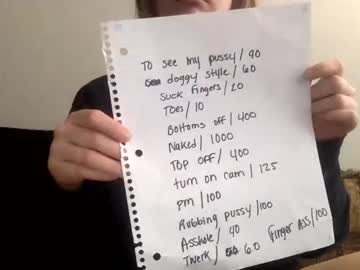 To see my pussy / 90
doggy style / 60
Suck fingers / 20
Toes / 10
Bottoms off / 400
Naked / 1000
Top off / 400
turn on cam / 125
pm / 100
Rubbing pussy / 100
Asshole / 40 Finger Ass / 100
Twerk / 60